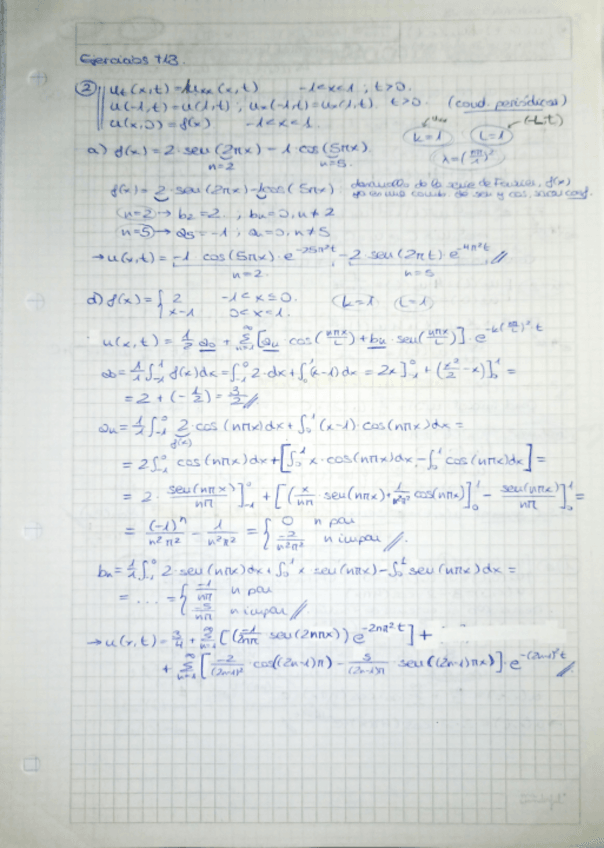 Ejercicios T13.
② u_t(x,t) = k u_xx(x,t) -1<x<1 ; t>0.
u(-1,t) = u(1,t) ; u_x(-1,t) = u_x(1,t). t>0. (cond. periódicas)
u(x,0) = f(x) -1<x<1. k=1 L=1 (-L,L)
λ = (nπ/1)²
a) f(x) = 2·sen(2πx) - 1·cos(5πx).
n=2 n=5.
f(x) = 2·sen(2πx) - 1cos(5πx) : desarrollo de la serie de Fourier, f(x)
ya es una comb. de sen y cos, coef.
n=2 → b₂=2. ; bn=0, n≠2
n=5 → a₅=-1 ; an=0, n≠5
→ u(x,t) = -1 cos(5πx)·e^(-25π²t) - 2·sen(2πt) e^(-4π²t) //
n=2. n=5
d) f(x) = { 2 -1<x≤0. (k=1 L=1)
x-1 0<x<1.
u(x,t) = 1/2 a₀ + Σ_(n=1)^∞ [an·cos(nπx/L) + bn·sen(nπx/L)]·e^(-k(nπ/L)²t)
a₀ = 1/1 ∫_(-1)^1 f(x)dx = ∫_(-1)^0 2·dx + ∫_0^1 (x-1)dx = 2x]_(-1)^0 + (x²/2 - x)]_0^1 =
= 2 + (-1/2) = 3/2 //
an = 1/1 ∫_(-1)^0 2·cos(nπx)dx + ∫_0^1 (x-1)·cos(nπx)dx =
f(x)
= 2∫_(-1)^0 cos(nπx)dx + [∫_0^1 x·cos(nπx)dx - ∫_0^1 cos(nπx)dx] =
= 2· sen(nπx)/nπ ]_(-1)^0 + [(x/nπ · sen(nπx) + 1/n²π² cos(nπx)]_0^1 - sen(nπx)/nπ ]_0^1 =
= (-1)^n/n²π² - 1/n²π² = { 0 n par
-2/n²π² n impar //.
bn = 1/1 ∫_(-1)^0 2·sen(nπx)dx + ∫_0^1 x sen(nπx) - ∫_0^1 sen(nπx)dx =
= ... = { -1/nπ n par
-5/nπ n impar //
→ u(x,t) = 3/4 + Σ_(n=1)^∞ [(-1/2nπ sen(2nπx)) e^(-2nπ²t)] +
+ Σ_(n=1)^∞ [-2/(2n-1)² · cos((2n-1)π) - 5/(2n-1)π · sen((2n-1)πx)]·e^(-(2n-1)²t) //